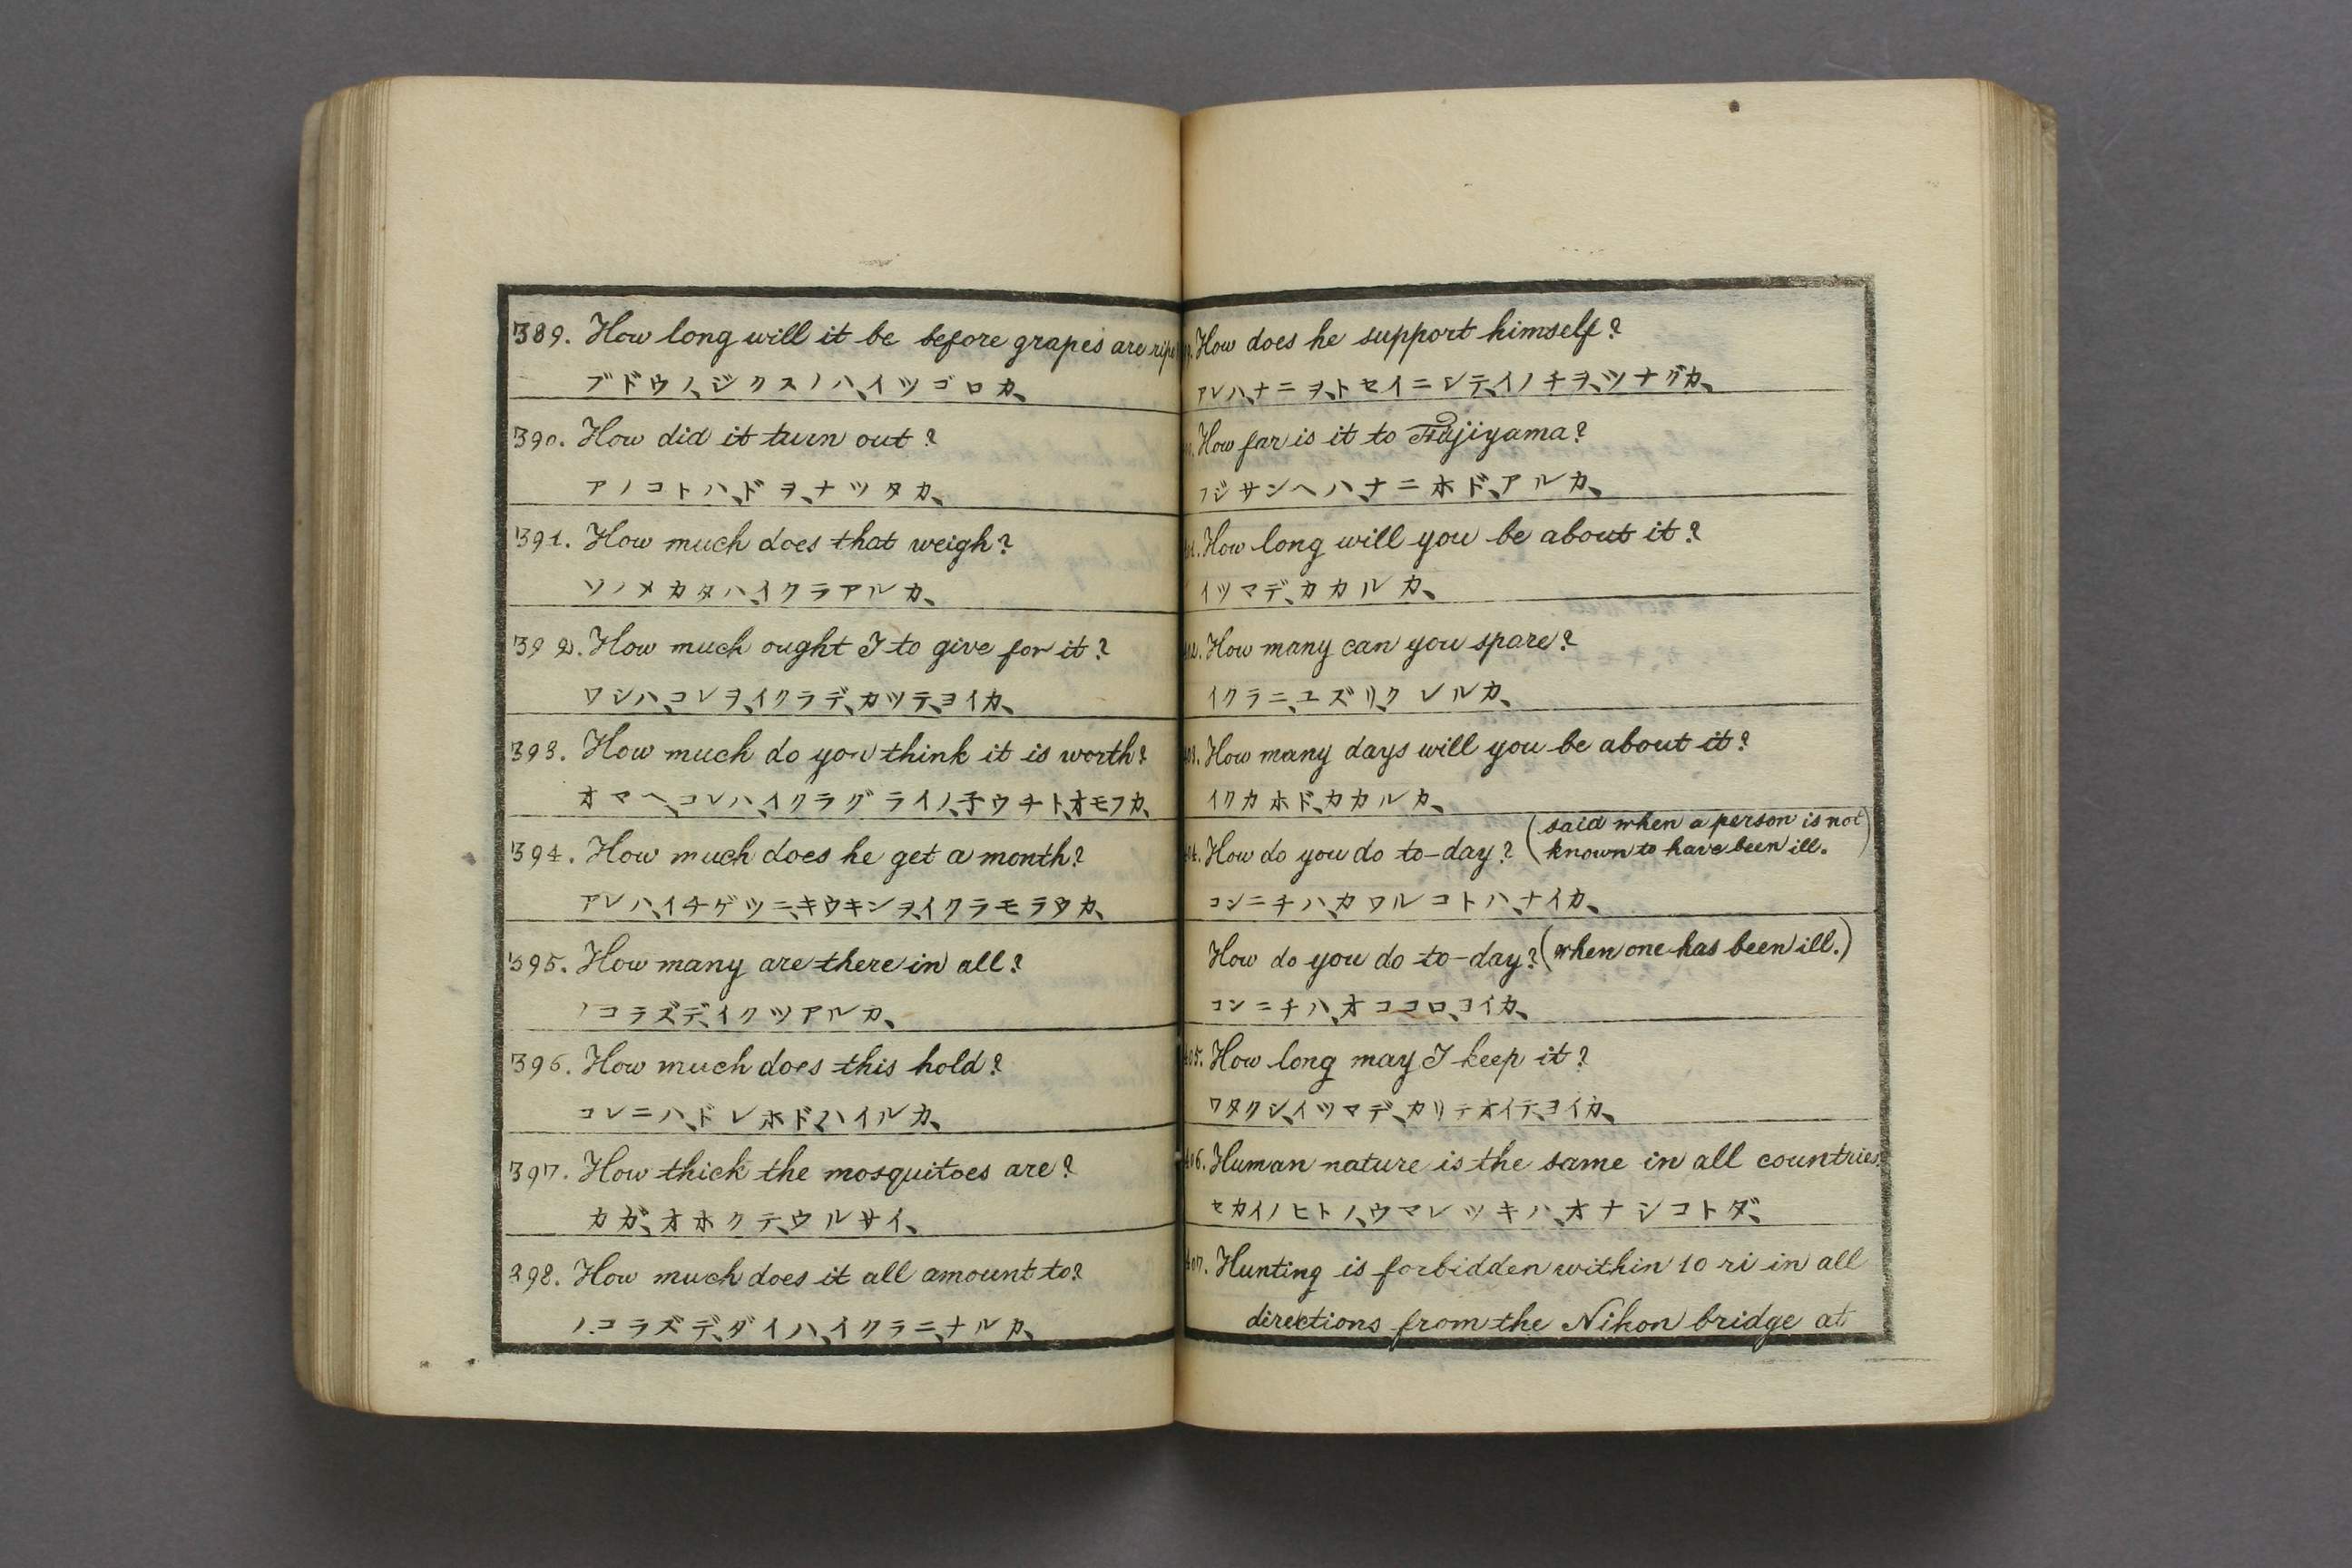 389. How long will it be before grapes are ripe
ブドウノ、ジクスノハ、イツゴロカ、
390. How did it turn out?
アノコトハ、ドヲ、ナツタカ、
391. How much does that weigh?
ソノメカタハ、イクラアルカ、
392. How much ought I to give for it?
ワシハ、コレヲ、イクラデ、カツテ、ヨイカ、
393. How much do you think it is worth?
オマヘ、コレハ、イクラグライノ、子ウチト、オモフカ、
394. How much does he get a month?
アレハ、イチゲツニ、キウキンヲ、イクラモラウカ、
395. How many are there in all?
ノコラズデ、イクツアルカ、
396. How much does this hold?
コレニハ、ドレホド、ハイルカ、
397. How thick the mosquitoes are?
カガ、オホクテ、ウルサイ、
398. How much does it all amount to?
ノコラズデ、ダイハ、イクラニ、ナルカ、
How does he support himself?
アレハ、ナニヲ、トセイニシテ、イノチヲ、ツナグカ、
How far is it to Fujiyama?
フジサンヘハ、ナニホド、アルカ、
How long will you be about it?
イツマデ、カカルカ、
How many can you spare?
イクラニ、ユズリ、クレルカ、
How many days will you be about it?
イクカホド、カカルカ、
How do you do to-day? (said when a person is not known to have been ill.)
コンニチハ、カワルコトハ、ナイカ、
How do you do to-day? (when one has been ill.)
コンニチハ、オココロ、ヨイカ、
405. How long may I keep it?
ワタクシ、イツマデ、カリテオイテ、ヨイカ、
406. Human nature is the same in all countries.
セカイノヒトノ、ウマレツキハ、オナシコトダ、
407. Hunting is forbidden within 10 ri in all
directions from the Nihon bridge at